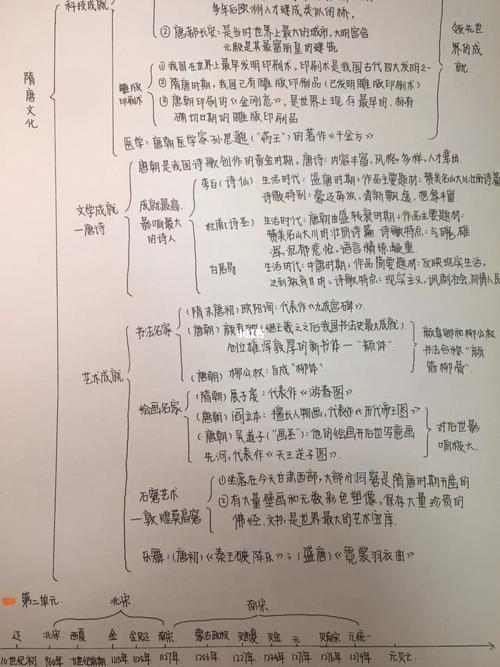 科技成就
多年后欧洲人才建成类似的桥.
② 唐都长安: 是当时世界上最大的城市, 大明宫含
元殿是其最富丽的建筑
领先世
界的成
就.
隋唐文化
雕版
印刷术
① 我国在世界上最早发明印刷术, 印刷术是我国古代四大发明之一
② 隋唐时期, 我国已有雕版印刷品(已发明雕版印刷术)
③ 唐朝印刷的《金刚经》, 是世界上现有最早的、标有
确切日期的雕版印刷品
医学: 唐朝医学家孙思邈("药王")的著作《千金方》
文学成就
—唐诗
唐朝是我国诗歌创作的黄金时期。唐诗: 内容丰富, 风格多样, 人才辈出.
成就最高.
影响最大
的诗人
李白(诗仙)
生活时代: 盛唐时期; 作品主要题材: 赞美名山大川壮丽诗篇
诗歌特别: 豪迈奔放, 清新飘逸, 想象丰富.
杜甫(诗圣)
生活时代: 唐朝由盛转衰时期; 作品主要题材:
赞美名山大川的壮丽诗篇 诗歌特点: 气魄雄
浑, 沉郁悲怆, 语言精炼, 凝重
白居易
生活时代: 中唐时期, 作品简要题材: 反映现实生活,
达到教育目的。诗歌特点: 现实主义, 讽刺社会, 同情人民
艺术成就
书法名家
(隋末唐初)欧阳询: 代表作《九成宫碑》.
(唐朝)颜真卿(继王羲之之后我国书法史最大成就)
创立雄浑敦厚的新书体—"颜体".
(唐朝)柳公权: 自成"柳体"
颜真卿和柳公权
书法合称"颜
筋柳骨".
绘画名家
(隋朝)展子虔: 代表作《游春图》
(唐朝)阎立本: 擅长人物画, 代表作《历代帝王图》
(唐朝)吴道子("画圣"): 他的绘画开后世写意画
先河, 代表作《天王送子图》.
对后世影
响极大.
石窟艺术
—敦煌莫高窟
① 坐落在今天甘肃西部, 大部分洞窟是隋唐时期开凿的
② 有大量壁画和无数彩色塑像, 保存大量珍贵的
佛经、文书, 是世界最大的艺术宝库.
乐舞: (唐初)《秦王破阵乐》; (盛唐)《霓裳羽衣曲》
第二单元.
北宋
南宋
辽 北宋 西夏 金 金灭辽 南宋 蒙古政权 灭西夏 灭金 元 灭南宋 元统一
10世纪初 960年 11世纪前期 1115年 1125年 1127年 1206年 1227年 1234年 1271年 1276年 1279年 元灭亡